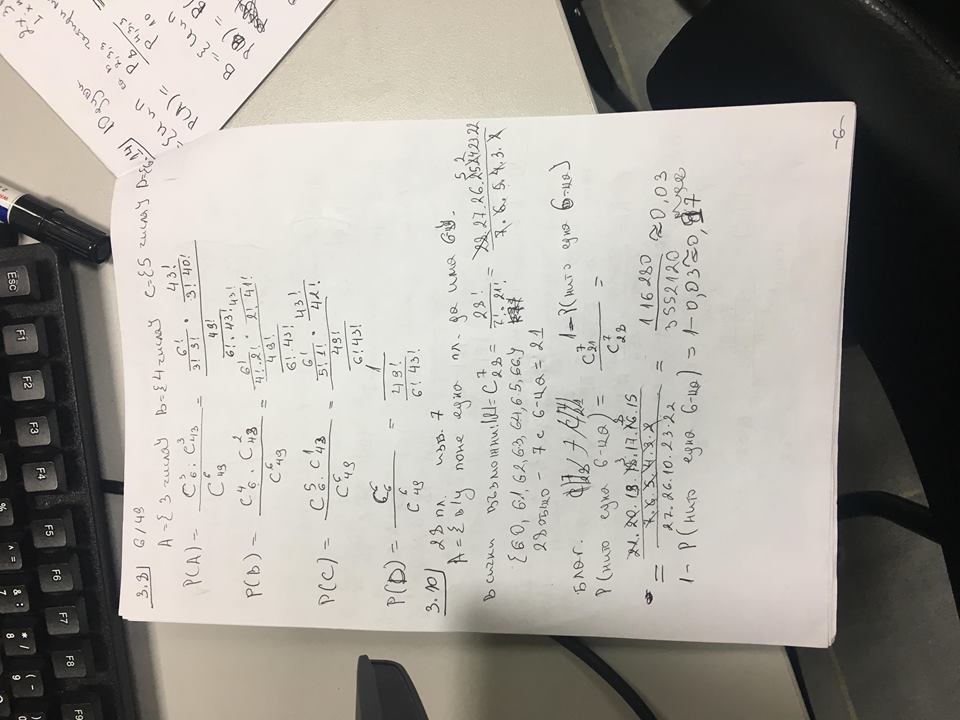 3.9 6/49
A={3 числа} B={4 числа} C={5 числа} D={6
P(A) = C₆³ . C₄₃³ / C₄₉⁶ = (6!/(3! 3!) . 43!/(3! 40!)) / (49!/(6! . 43!))
P(B) = C₆⁴ . C₄₃² / C₄₉⁶ = (6!/(4! . 2!) . 43!/(2! 41!)) / (49!/(6! . 43!))
P(C) = C₆⁵ . C₄₃¹ / C₄₉⁶ = (6!/(5! 1!) . 43!/42!) / (49!/(6! 43!))
P(D) = C₆⁶ / C₄₉⁶ = 1 / (49!/(6! 43!))
3.10 28 пл. изв. 7
A = { в/у поне една пл. да има 6-ц}.
Всички възможни = C₂₈⁷ = 28!/(7! . 21!) = 28.27.26.25.24.23.22 / 7.6.5.4.3.2
5 2
{60, 61, 62, 63, 64, 65, 66}
28 общо - 7 с 6-ца = 21
Благ. 1-P(нито една 6-ца)
P(нито една 6-ца) = C₂₁⁷ / C₂₈⁷ =
= (21.20.19.18.17.16.15 / 7.6.5.4.3.2) / 27.26.10.23.22 = 116280 / 3552120 ≈ 0,03
1 - P(нито една 6-ца) = 1-0,03 ≈ 0,97
-6-
14
10 души
2,3,3
P₈
4,3,3
P
10
={и и п
P(A) =
B={и и п
P(B) =
2 x 3
ESC
F1
F2
F3
F4
F5
F6
F7
F8
F9